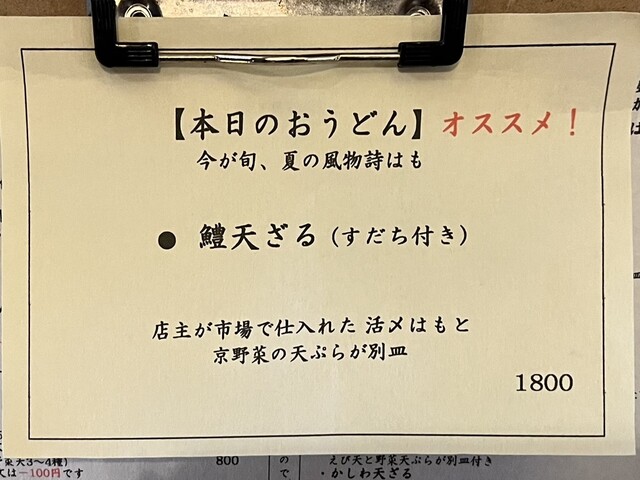 【本日のおうどん】オススメ！
今が旬、夏の風物詩はも
●鱧天ざる（すだち付き）
店主が市場で仕入れた 活〆はもと
京野菜の天ぷらが別皿
1800
800
は－100円です
の
で
えび天と野菜天ぷらが別皿付き
・かしわ天ざる